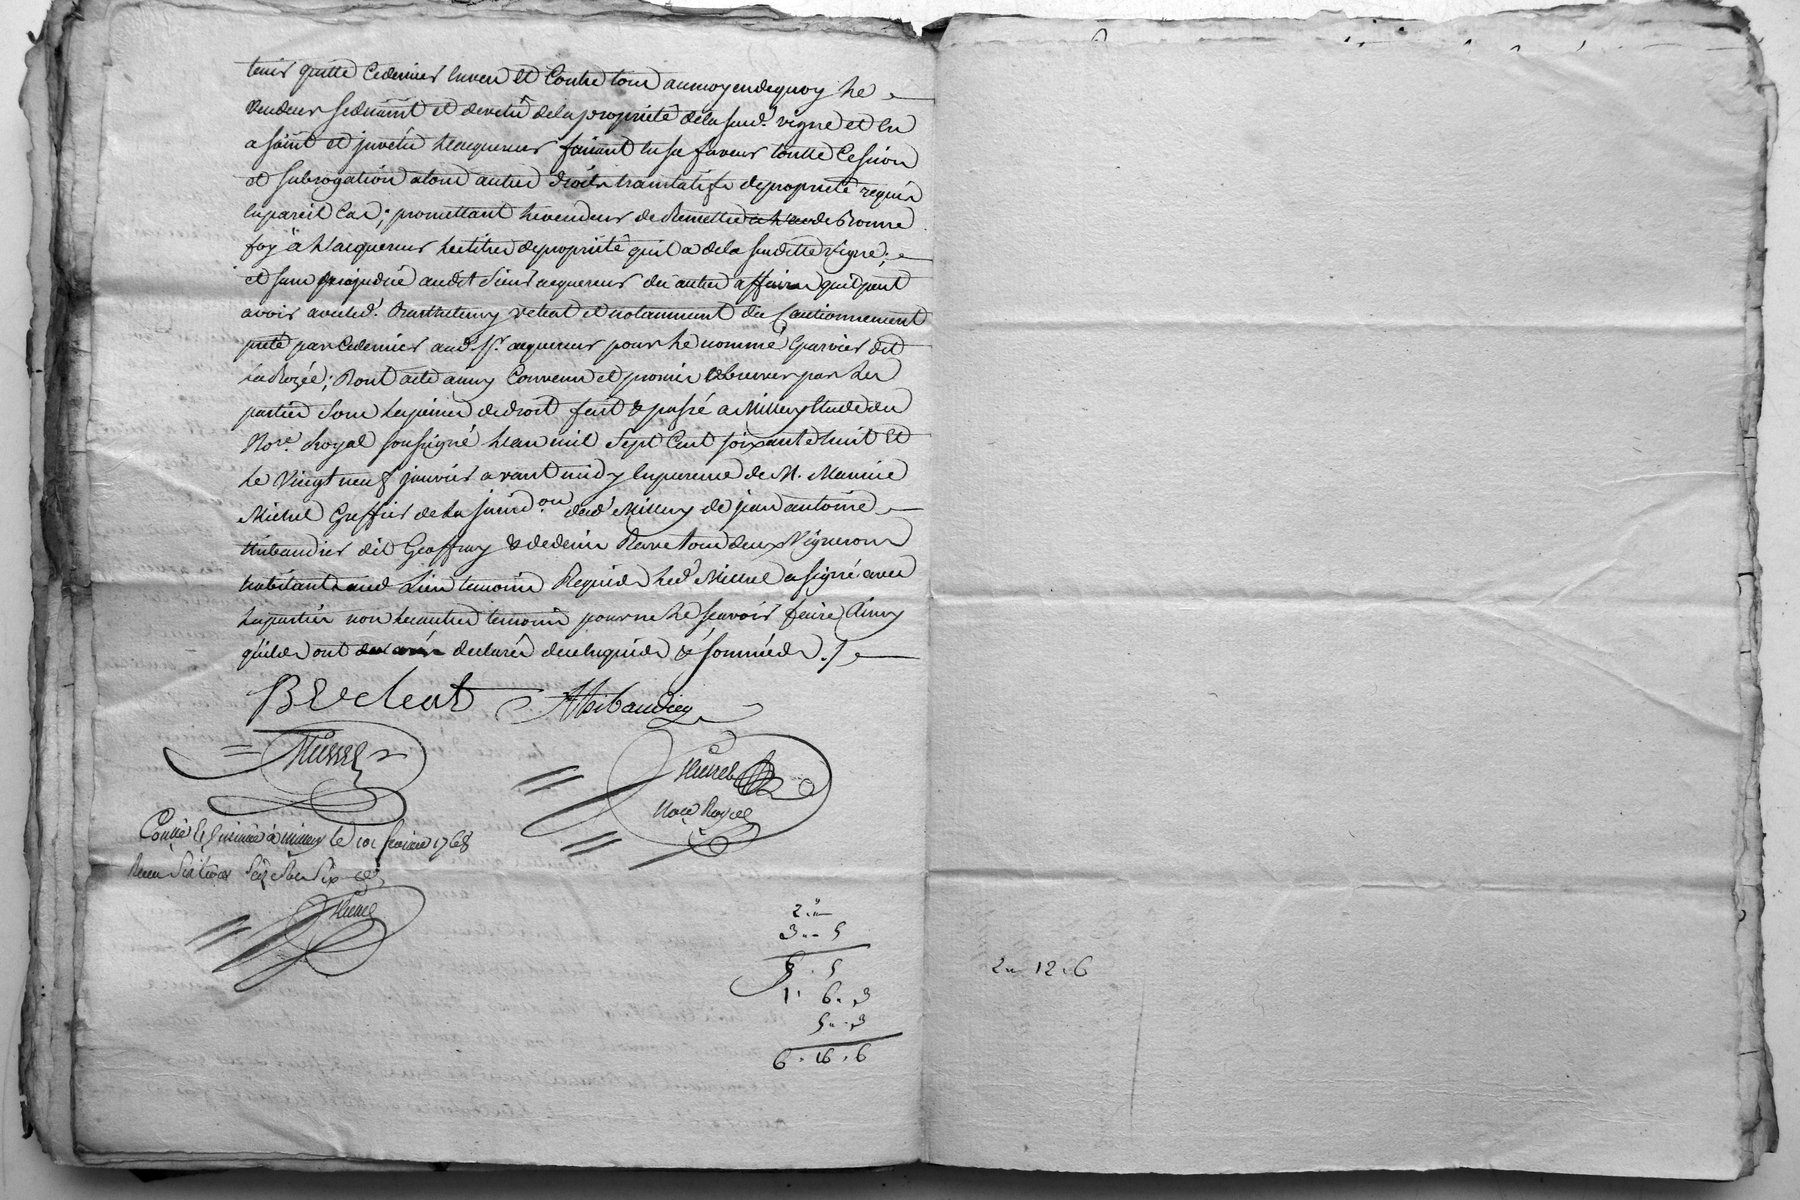 tenir quitte ce dernier envers et contre tous au moyen de quoy le
vendeur sedmint et devetu de la propriété de la susd.e vigne et en
a saisit et jnvetu l'acquereur faisant en sa faveur toutte Cession
et subrogation et tous autres droits translatifs de propriété requis
en pareil Cas; promettant le vendeur de Remettre de Bonne
foy à l'acquereur les titres de propriété qu'il a de la susditte vigne;
et sans prejudice audit Sieur acquereur des autres affaires qu'il peut
avoir avec led.t Barthelemy velent et notamment du Cautionnement
preté par ce dernier aud. Sr. acquereur pour le nommé Garnier dit
la Rozée; Dont acte ainsy Convenu et promis observer par les
parties sous les peines de droit fait & passé a Millery Etude du
No.re Royal soussigné l'an mil Sept Cent soixante huit et
le Vingt neuf janvier avant midy en presence de M. Maurice
Michel Greffier de la jurid.on dud.t Millery de jean antoine
thibaudier dit Geoffray & de denis Rave tous deux Vignerons
habitants aud. Lieu temoins Requis led.t Michel a signé avec
les parties non les autres temoins pour ne le sçavoir faire Ainsy
qu'ils ont declaré de ce enquis & sommés ./.
B Velent Thibaudier
Michel
Michel
No.re Royal
Con.lé & Insinué à Millery le 10 fevrier 1768
Receu Six livres Seize Sols Six d.
Michel
2 . "
3 .. 5
5 . 5
1 . 6 . 3
5 .. 3
6 . 16 . 6
2 .. 12 . 6